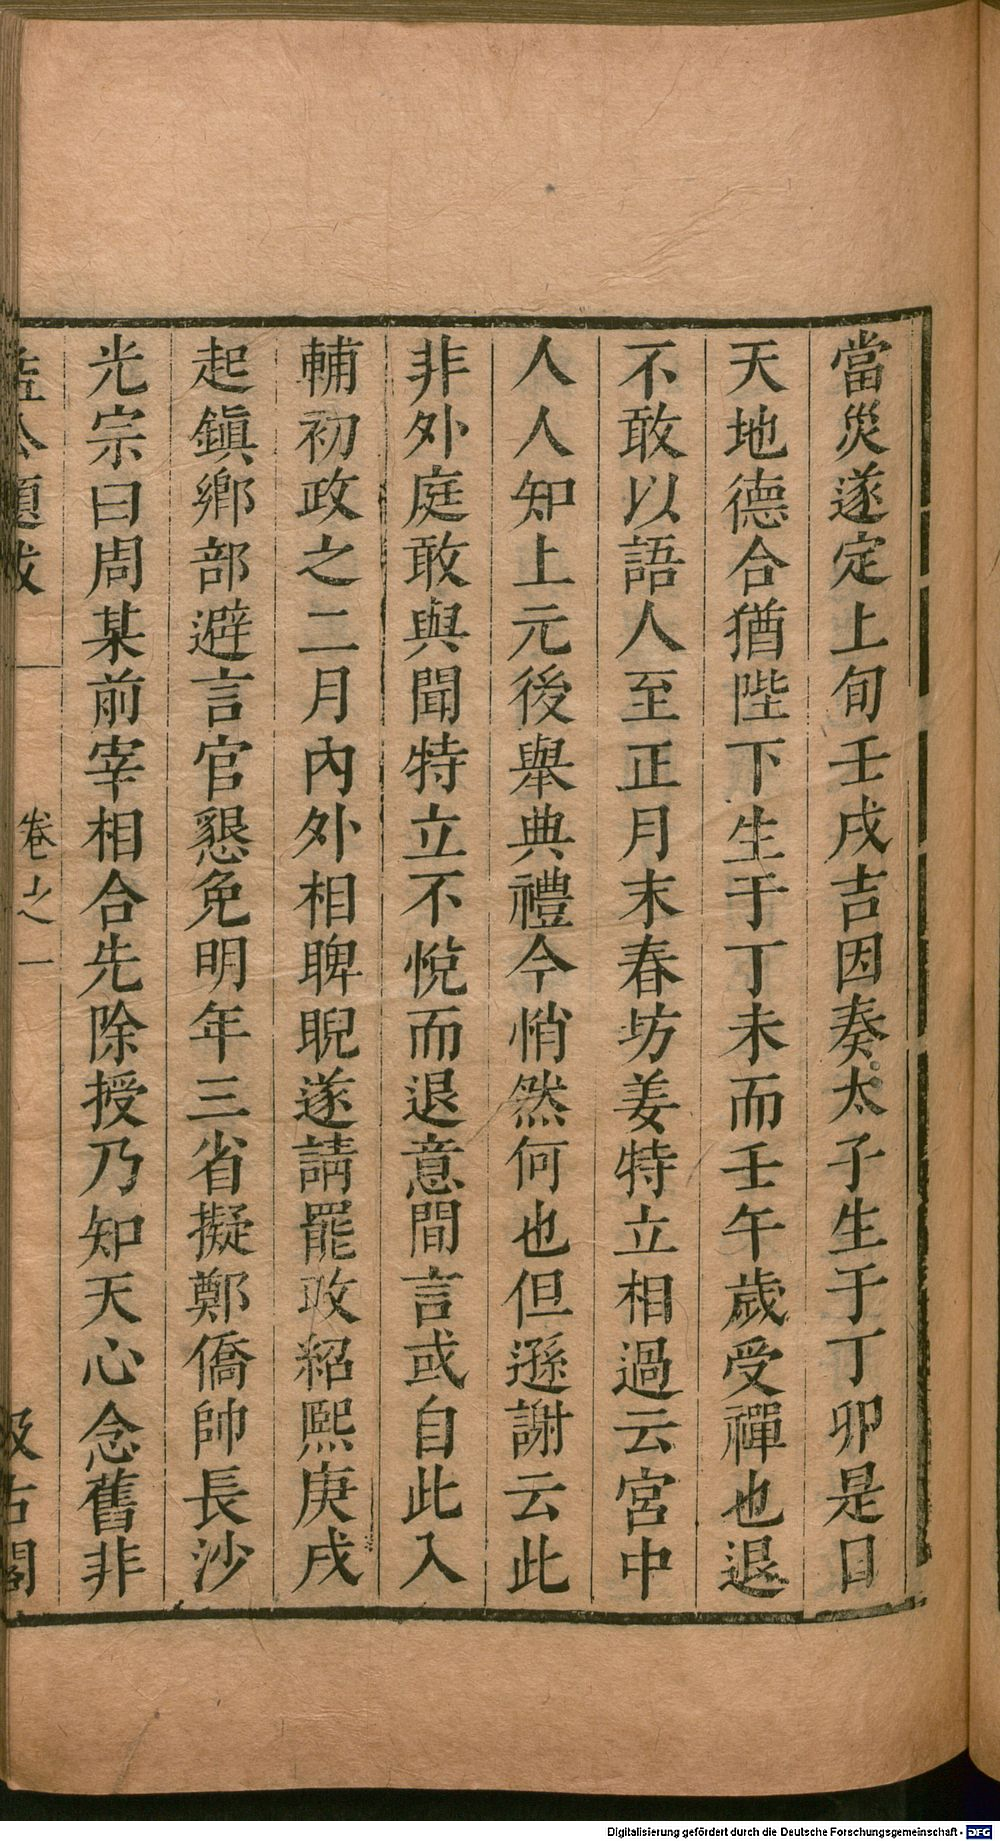 當災遂定上旬壬戌吉因奏太子生于丁卯是日
天地德合猶陛下生于丁未而壬午歲受禪也退
不敢以語人至正月末春坊姜特立相過云宮中
人人知上元後舉典禮今悄然何也但遜謝云此
非外庭敢與聞特立不悅而退意間言或自此入
輔初政之二月內外相睥睨遂請罷政紹熙庚戌
起鎮鄉部避言官懇免明年三省擬鄭僑帥長沙
光宗曰周某前宰相合先除授乃知天心念舊非
益公題跋 卷之一 汲古閣
Digitalisierung gefördert durch die Deutsche Forschungsgemeinschaft - DFG